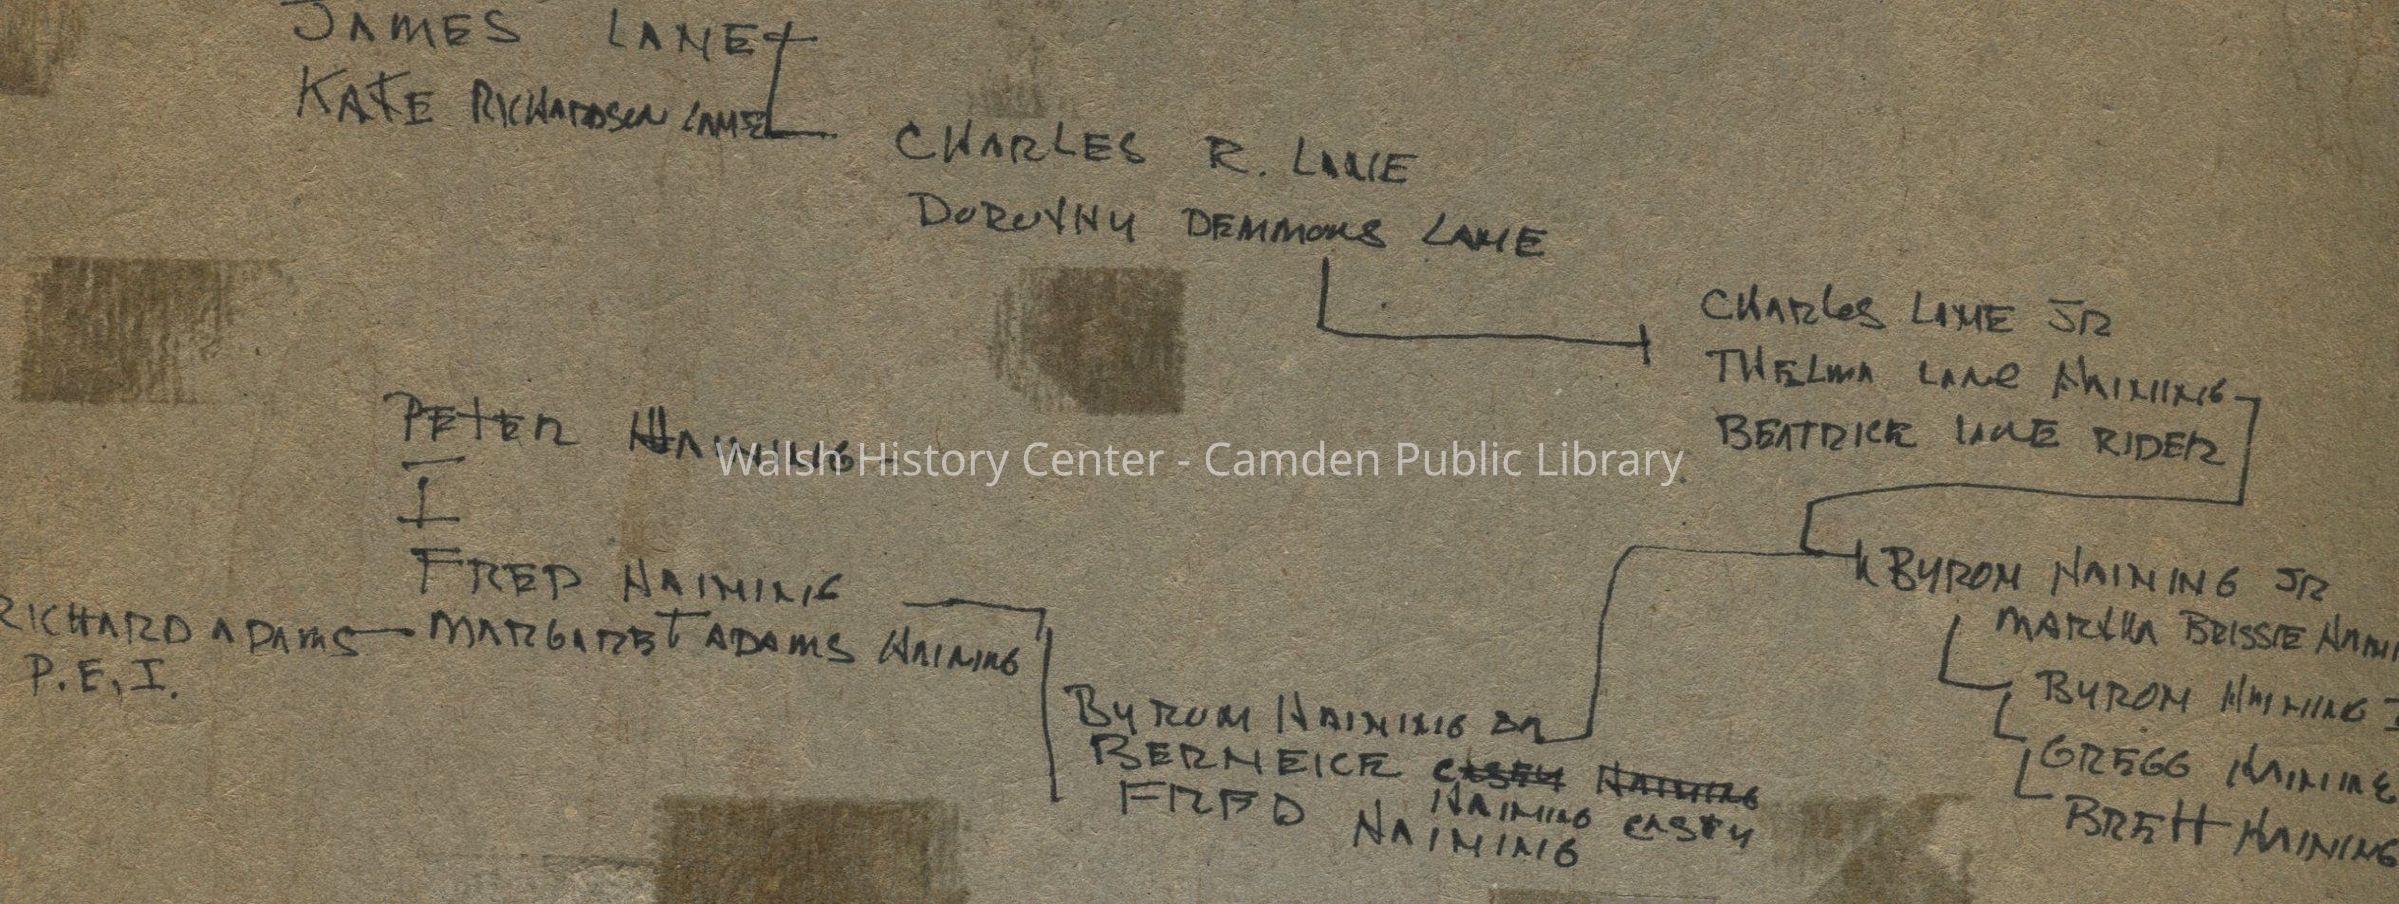 JAMES LANE
KATE RICHARDSON LANE
CHARLES R. LANE
DOROTHY DEMMONS LANE
CHARLES LANE JR
THELMA LANE HAINING
BEATRICE LANE RIDER
PETER HAINING
Walsh History Center - Camden Public Library
FRED HAINING
RICHARD ADAMS - MARGARET ADAMS HAINING
P.E.I.
BYRON HAINING JR
MARTHA BRISSIE HAINI
BYRON HAINING SR
BERNEICE CASEY HAINING
HAINING CASEY
FRED HAINING
BYRON HAINING I
GREGG HAINING
BRETT HAINING